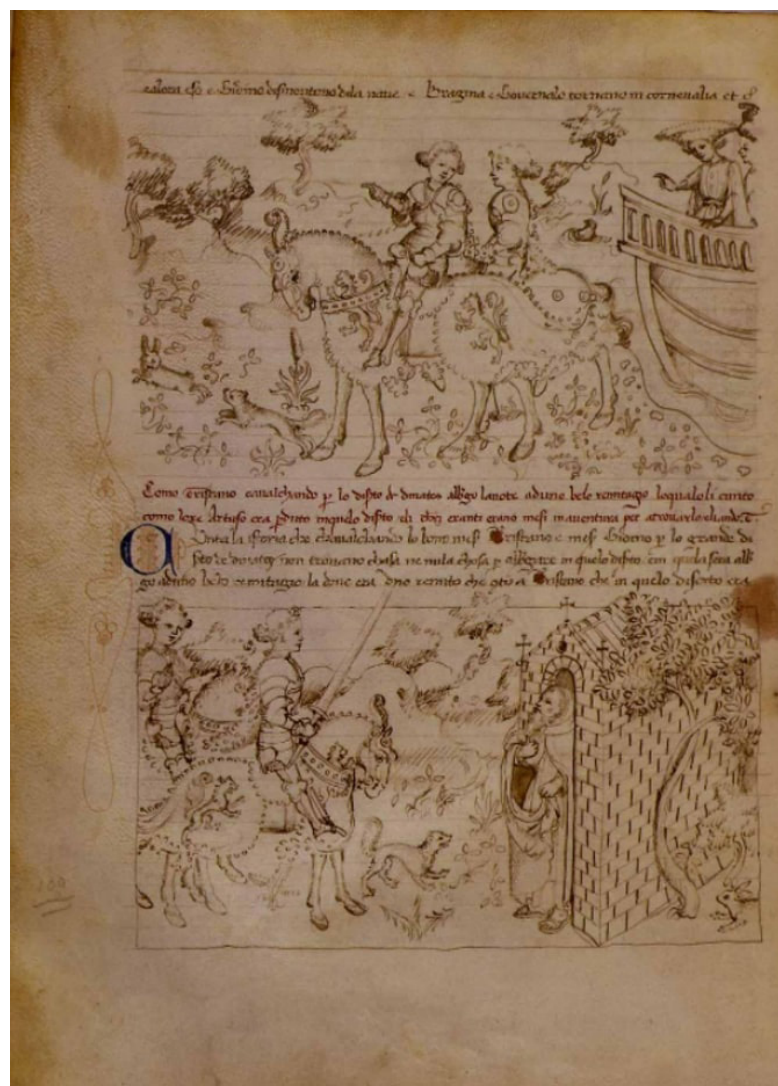 alora eso e Gidino desmonteno dela nave e Bragina e Governale tornano in cornevalia et
Como Tristano cavalchando p lo desto de darnates albgo la note ad uno belo remitagio loqualo li cunto
como lo re Artuso era pduto in quelo desto eli eranti erano mesi in aventura per atrovarlo
Onta la istoria che chavalchando lo bono mes Tristano e mes Gidino p lo grande di
sto de darnates non trovano chasa ne nula chosa p albgare in quelo desto e in quela sera alb
go ad uno belo remitagio la dove era uno remito che a Tristano che in quelo deserto era